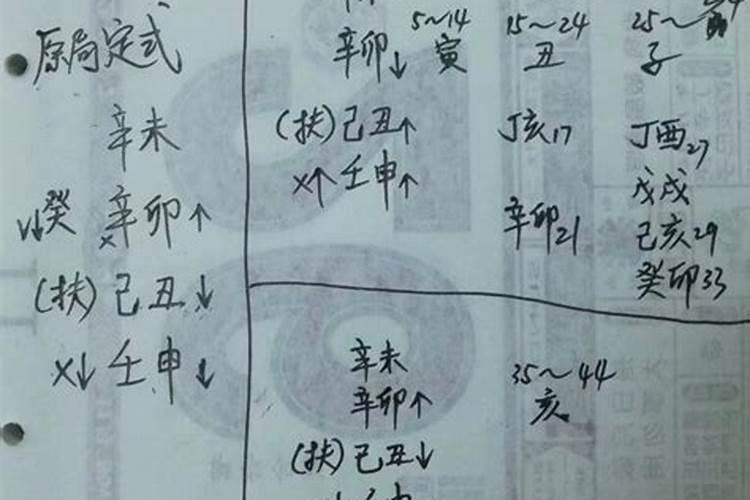 原局定式
辛未
癸 辛卯↑
×
(扶)己丑↓
×↓ 壬申↓
5~14 15~24 25~
辛卯↓ 寅 丑 子
(扶)己丑↑ 丁亥17 丁酉27
×↑ 壬申↑ 戊戌
辛卯21 己亥29
癸卯33
辛未 35~44
辛卯↑ 亥
(扶)己丑↓
壬申